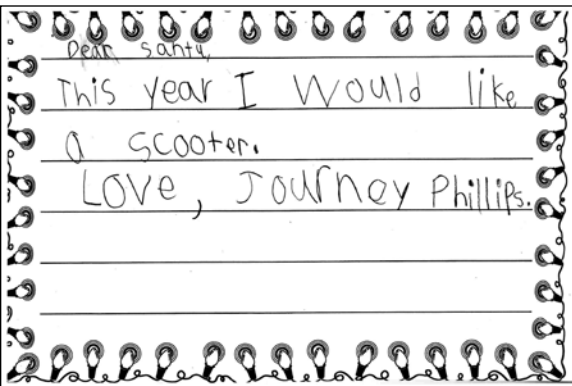 Dear Santa,
This year I Would like
a scooter.
LOVE, Journey Phillips.